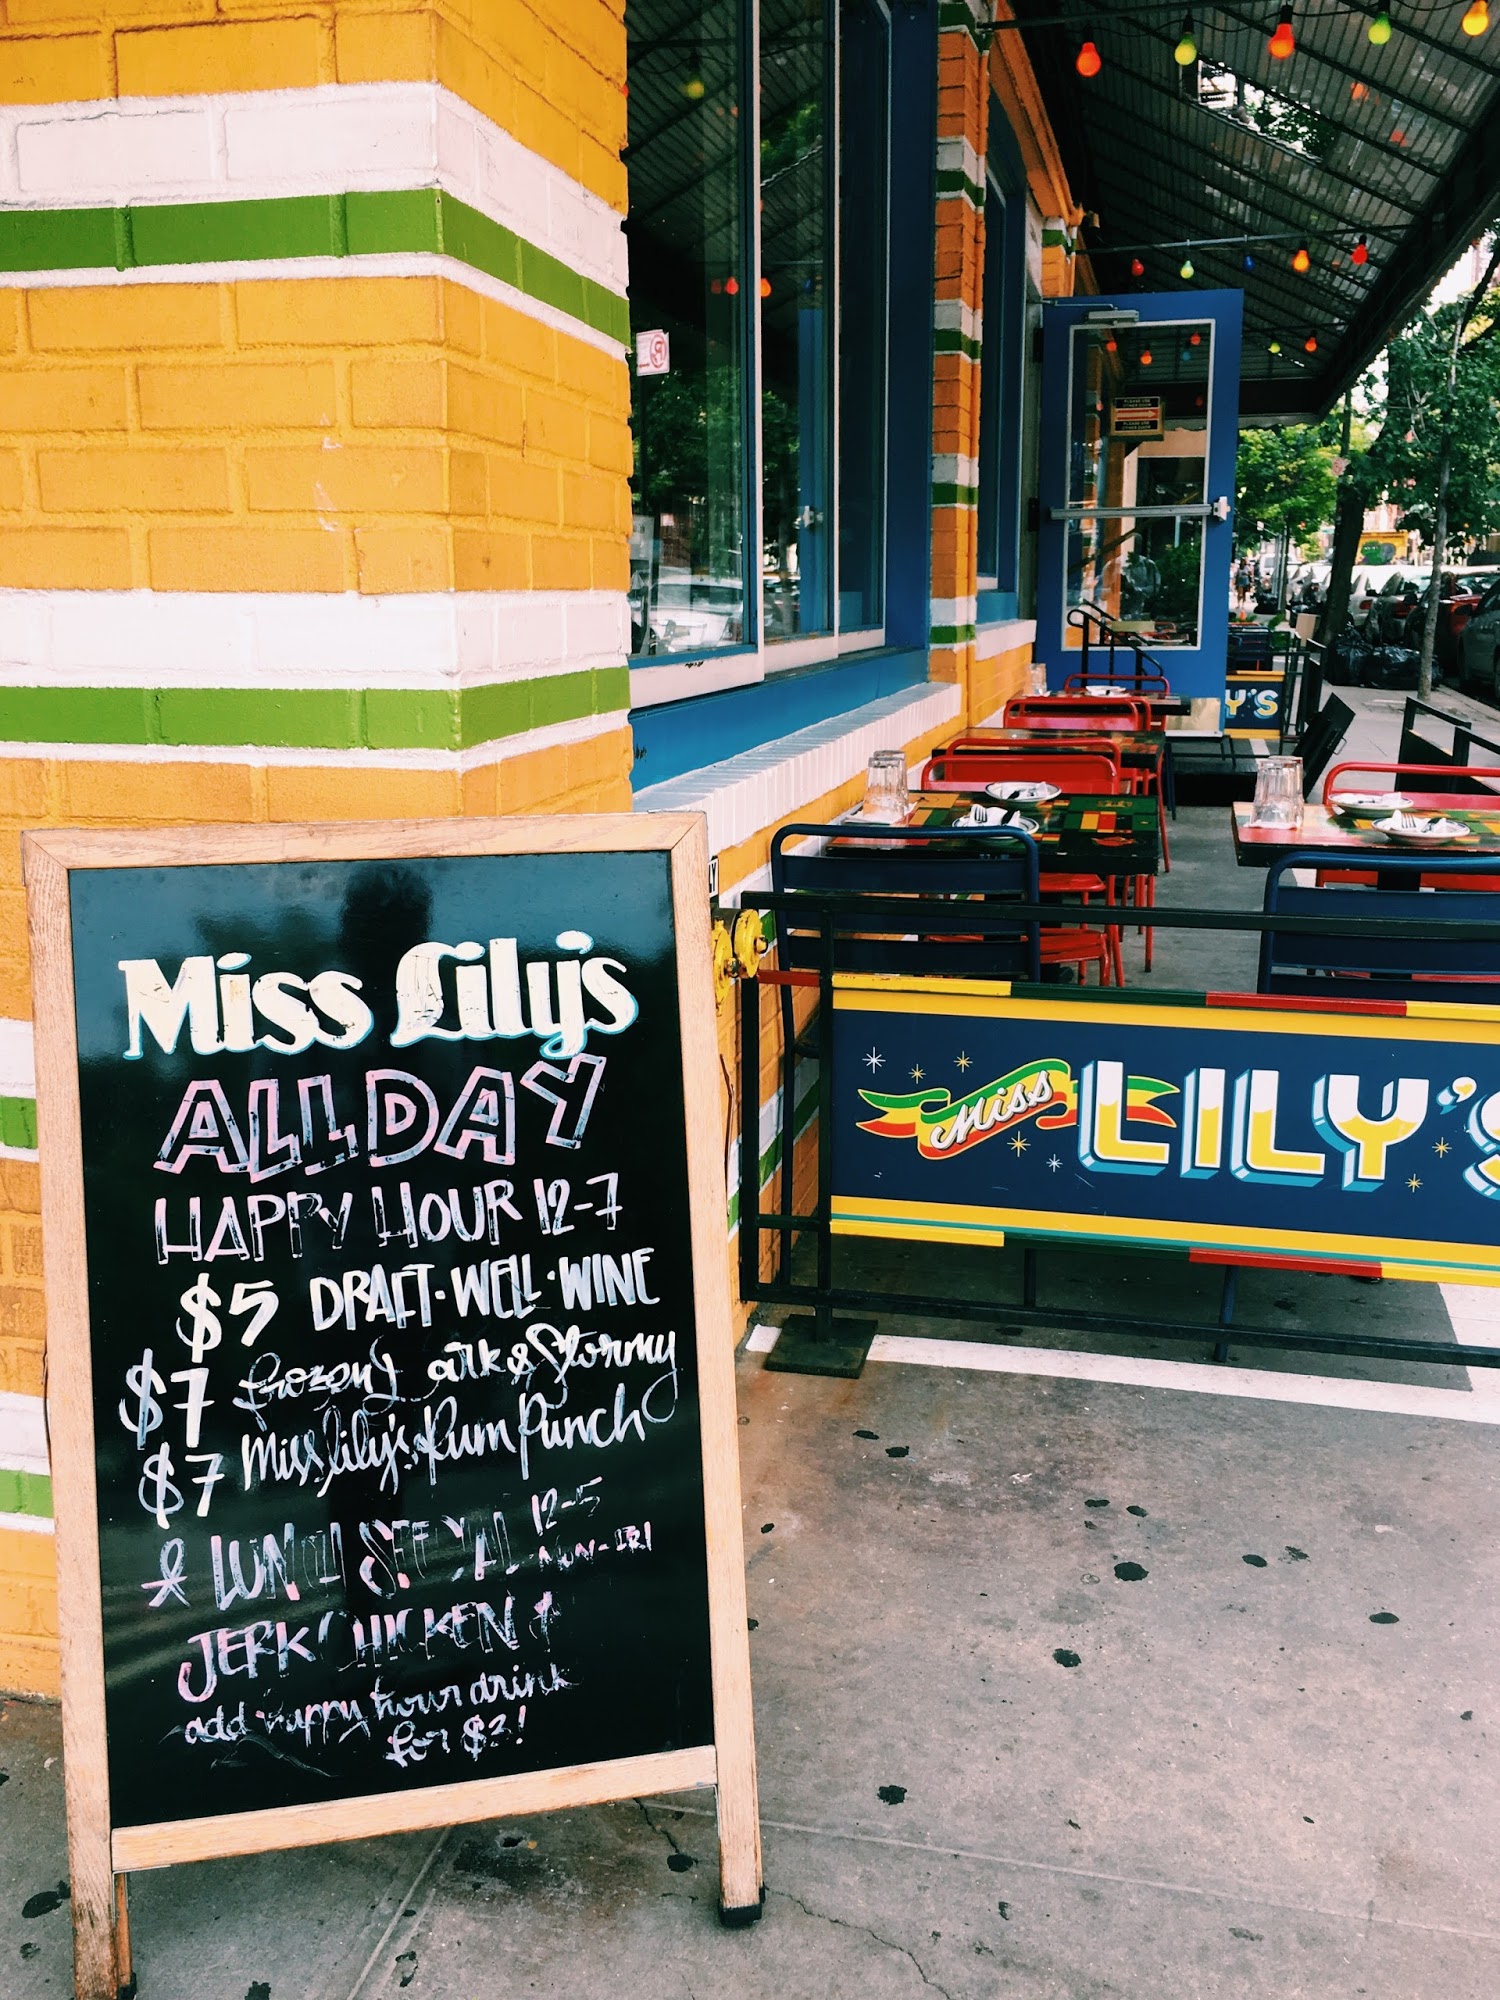 Miss Lily's
ALL DAY
HAPPY HOUR 12-7
$5 DRAFT·WELL·WINE
$7 frozen Dark & Stormy
$7 Miss Lily's Rum Punch
& LUNCH SPECIAL 12-5
MON-FRI
JERK CHICKEN
add happy hour drink
for $3!
Miss LILY'S
Y'S
PLEASE USE
OTHER DOOR
PLEASE USE
OTHER DOOR